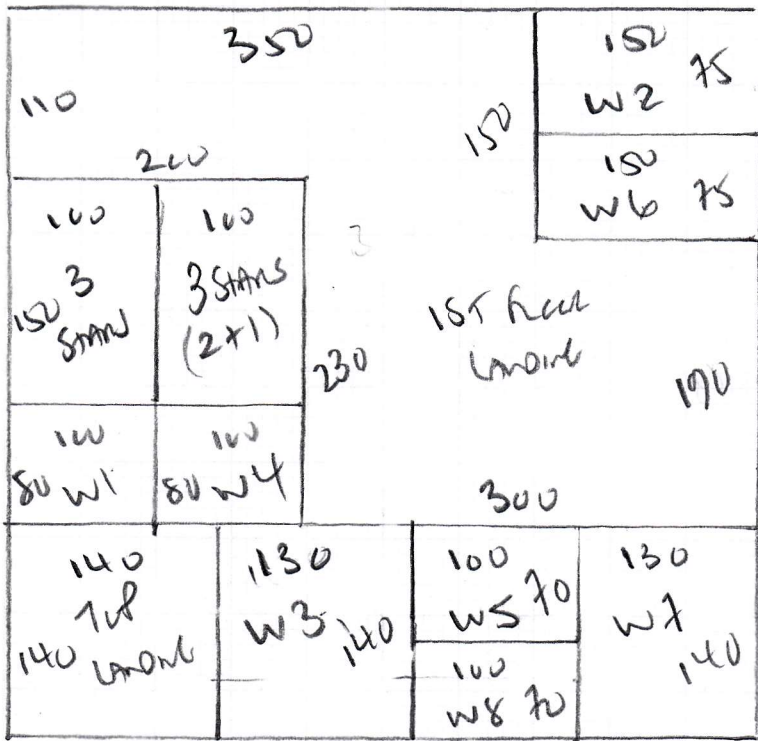 350
150
W2 75
110
150
150
W6 75
200
100
3
150 STAIRS
100
3 STAIRS
(2+1)
3
1ST FLOOR
LANDING
230
190
100
80 W1
100
80 W4
300
140
TOP
140 LANDING
130
W3 140
100
W5 70
100
W8 70
130
W7
140